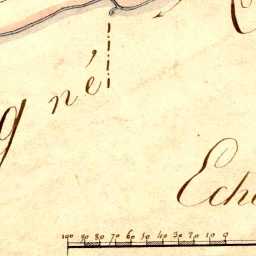 gné
Eche
100 90 80 70 60 50 40 30 20 10 0